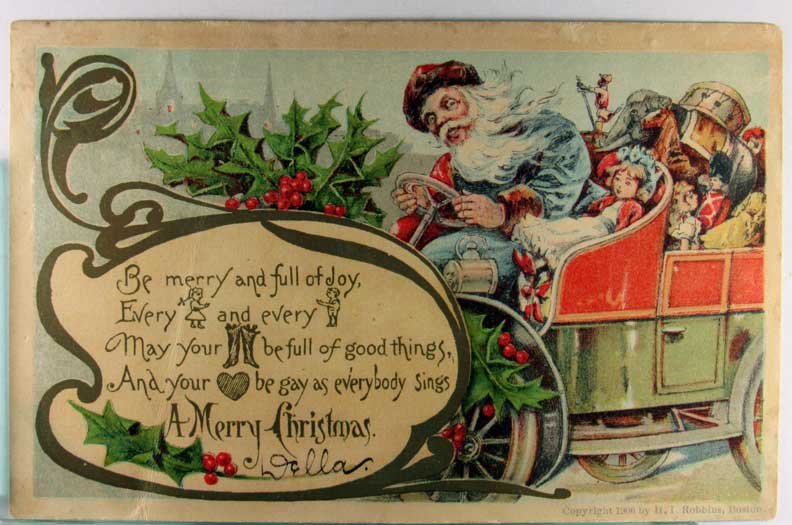 Be merry and full of Joy,
Every and every
May your be full of good things,
And your be gay as e'erybody sings
A Merry Christmas.
Della.
Copyright 1906 by H. I. Robbins, Boston.